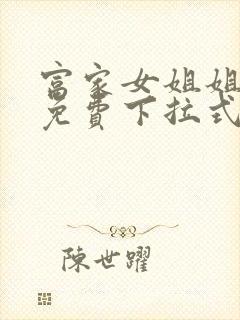 富家女姐姐
免費下拉式
陳世躍